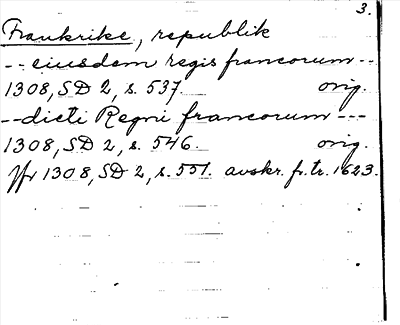 3.
Frankrike, republik
-- eiusdem regis francorum --
1308, SD 2, s. 537. orig.
-- dicti Regni francorum ---
1308, SD 2, s. 546. orig.
jfr 1308, SD 2, s. 551. avskr. fr. tr. 1623.